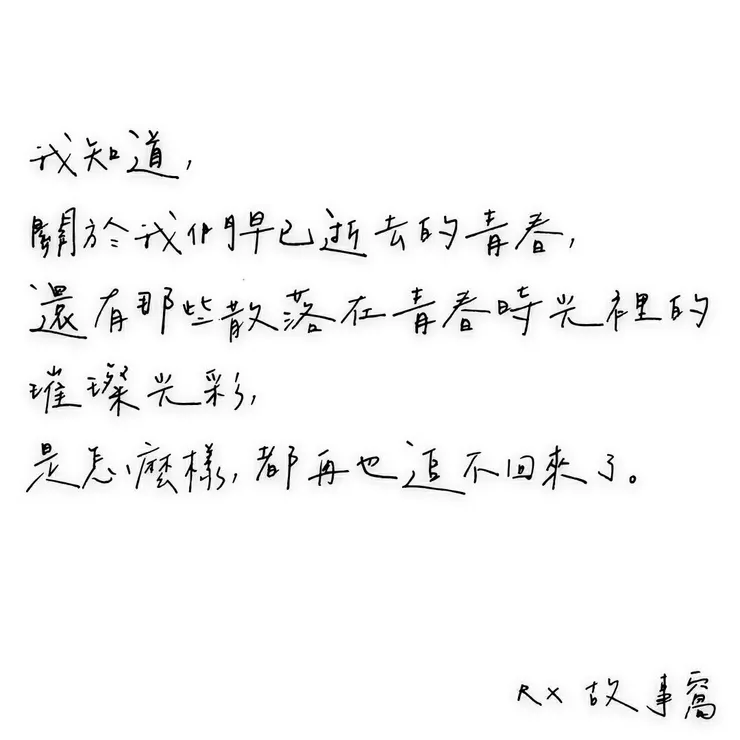 我知道,
關於我們早已逝去的青春,
還有那些散落在青春時光裡的
璀璨光彩,
是怎麼樣,都再也追不回來了。
RX 故事窩